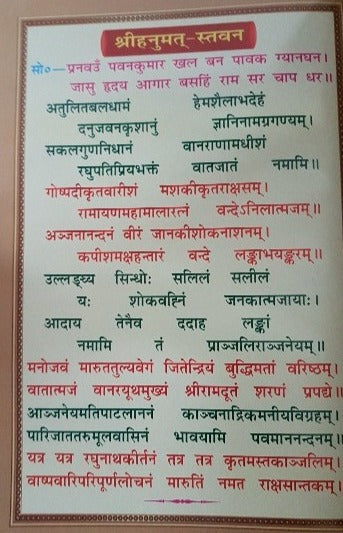 श्रीहनुमत्-स्तवन
सो०—प्रनवउँ पवनकुमार खल बन पावक ग्यानघन।
जासु हृदय आगार बसहिं राम सर चाप धर॥
अतुलितबलधामं हेमशैलाभदेहं
दनुजवनकृशानुं ज्ञानिनामग्रगण्यम्।
सकलगुणनिधानं वानराणामधीशं
रघुपतिप्रियभक्तं वातजातं नमामि॥
गोष्पदीकृतवारीशं मशकीकृतराक्षसम्।
रामायणमहामालारत्नं वन्देऽनिलात्मजम्॥
अञ्जनानन्दनं वीरं जानकीशोकनाशनम्।
कपीशमक्षहन्तारं वन्दे लङ्काभयङ्करम्॥
उल्लङ्घ्य सिन्धोः सलिलं सलीलं
यः शोकवह्निं जनकात्मजायाः।
आदाय तेनैव ददाह लङ्कां
नमामि तं प्राञ्जलिराञ्जनेयम्॥
मनोजवं मारुततुल्यवेगं जितेन्द्रियं बुद्धिमतां वरिष्ठम्।
वातात्मजं वानरयूथमुख्यं श्रीरामदूतं शरणं प्रपद्ये॥
आञ्जनेयमतिपाटलाननं काञ्चनाद्रिकमनीयविग्रहम्।
पारिजाततरुमूलवासिनं भावयामि पवमाननन्दनम्॥
यत्र यत्र रघुनाथकीर्तनं तत्र तत्र कृतमस्तकाञ्जलिम्।
वाष्पवारिपरिपूर्णलोचनं मारुतिं नमत राक्षसान्तकम्॥